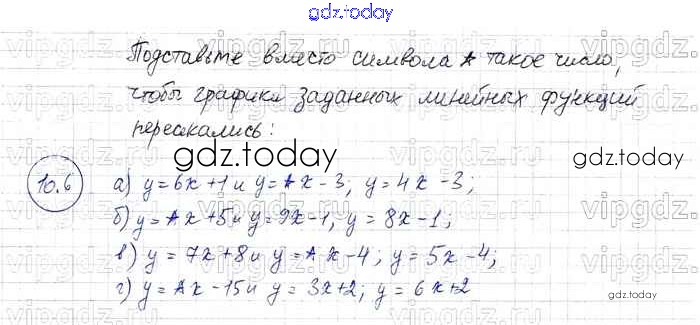 gdz.today
Подставьте вместо символа * такое число,
чтобы графики заданных линейных функций
пересекались:
gdz.today
gdz.today
10.6
а) y=6x+1 и y=*x-3; y=4x-3;
б) y=*x+5 и y=9x-1, y=8x-1;
в) y=7x+8 и y=*x-4; y=5x-4;
г) y=*x-15 и y=3x+2; y=6x+2
gdz.today